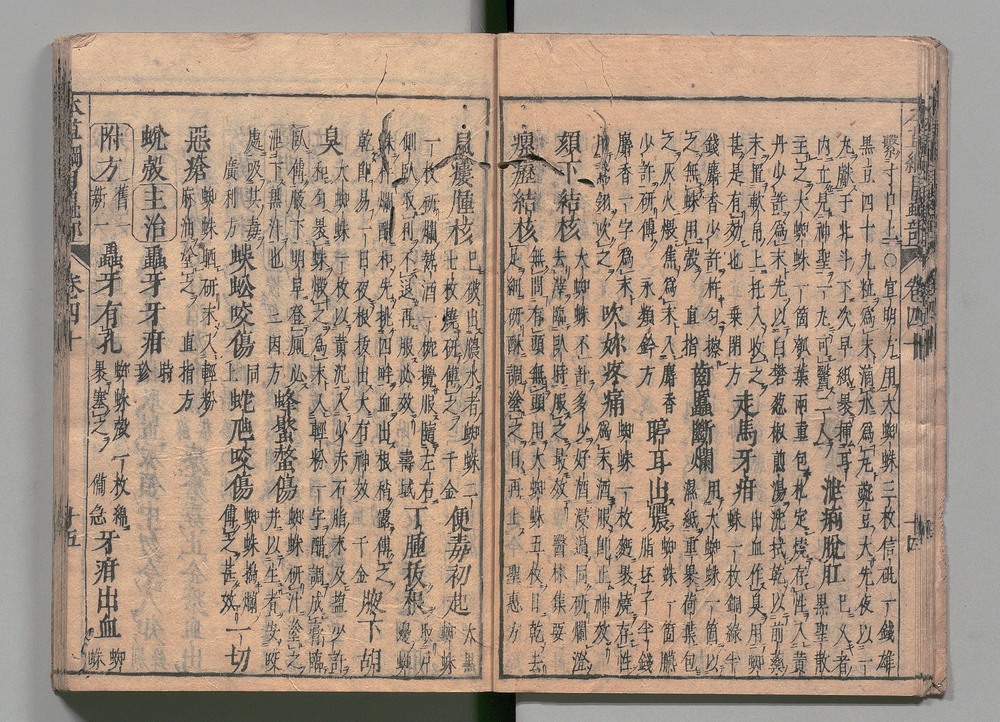 繫寸口上○宣明方用大蜘蛛三枚信砒一錢雄
黑豆四十九粒爲末滴水爲丸豌豆大先夜以一
丸獻于北斗下次早紙裹插耳
內立見神聖一丸可醫二人
泄痢脫肛 已久者黑聖散
主之大蜘蛛一箇瓠葉兩重包扎定燒存性入黃
丹少許爲末先以白礬葱椒煎湯洗拭乾以前藥
末置軟帛上托入收之
甚是有効也 乘閒方
走馬牙疳 出血作臭用蜘蛛一枚銅綠半
錢麝香少許杵勻擦
之無蛛用殼 直指
齒䘌斷爛 用大蜘蛛一箇以濕紙重裹荷葉包
之灰火煨焦爲末入麝香
少許研傅 永類鈐方
聤耳出膿 蜘蛛一箇臙脂坯子半錢
麝香一字爲末
用鵞翎吹之
吹妳疼痛 蜘蛛一枚麪裹燒存性爲末酒服卽止神效
頦下結核 大蜘蛛不計多少好酒浸過同研爛澄
去滓臨臥時服之最效 醫林集要
瘰癧結核 無問有頭無頭用大蜘蛛五枚日乾去
足細研酥調塗之日再上 聖惠方
鼠瘻腫核 已破出膿水者蜘蛛二七枚燒研傅之 千金
便毒初起 大黑蜘蛛
一枚研爛熱酒一椀攪服隨左右
側臥取利不退再服必效 壽域
丁腫拔根 取戶邊蜘
蛛杵爛醋和先挑四畔血出根稍露傅之
乾卽易一日夜根拔出大有神效 千金
腋下胡
臭 大蜘蛛一枚以黃泥入少赤石脂末及鹽少許
和勻裹蛛煅之爲末入輕粉一字醋調成膏臨
臥傅腋下明早登厠必
瀉下黑汁也 三因方
蜂蠍螫傷 蜘蛛研汁塗之幷以生者安咬
處吸其毒 廣利方
蜈蚣咬傷 同上
蛇虺咬傷 蜘蛛搗爛傅之甚效
一切
惡瘡 蜘蛛晒研末入輕粉
麻油塗之 直指方
蛻殼主治蟲牙牙疳 時珍
附方 舊 新一
蟲牙有孔 蜘蛛殼一枚綿裹塞之 備急
牙疳出血 蜘蛛
本草綱目蟲部 卷四十 十五